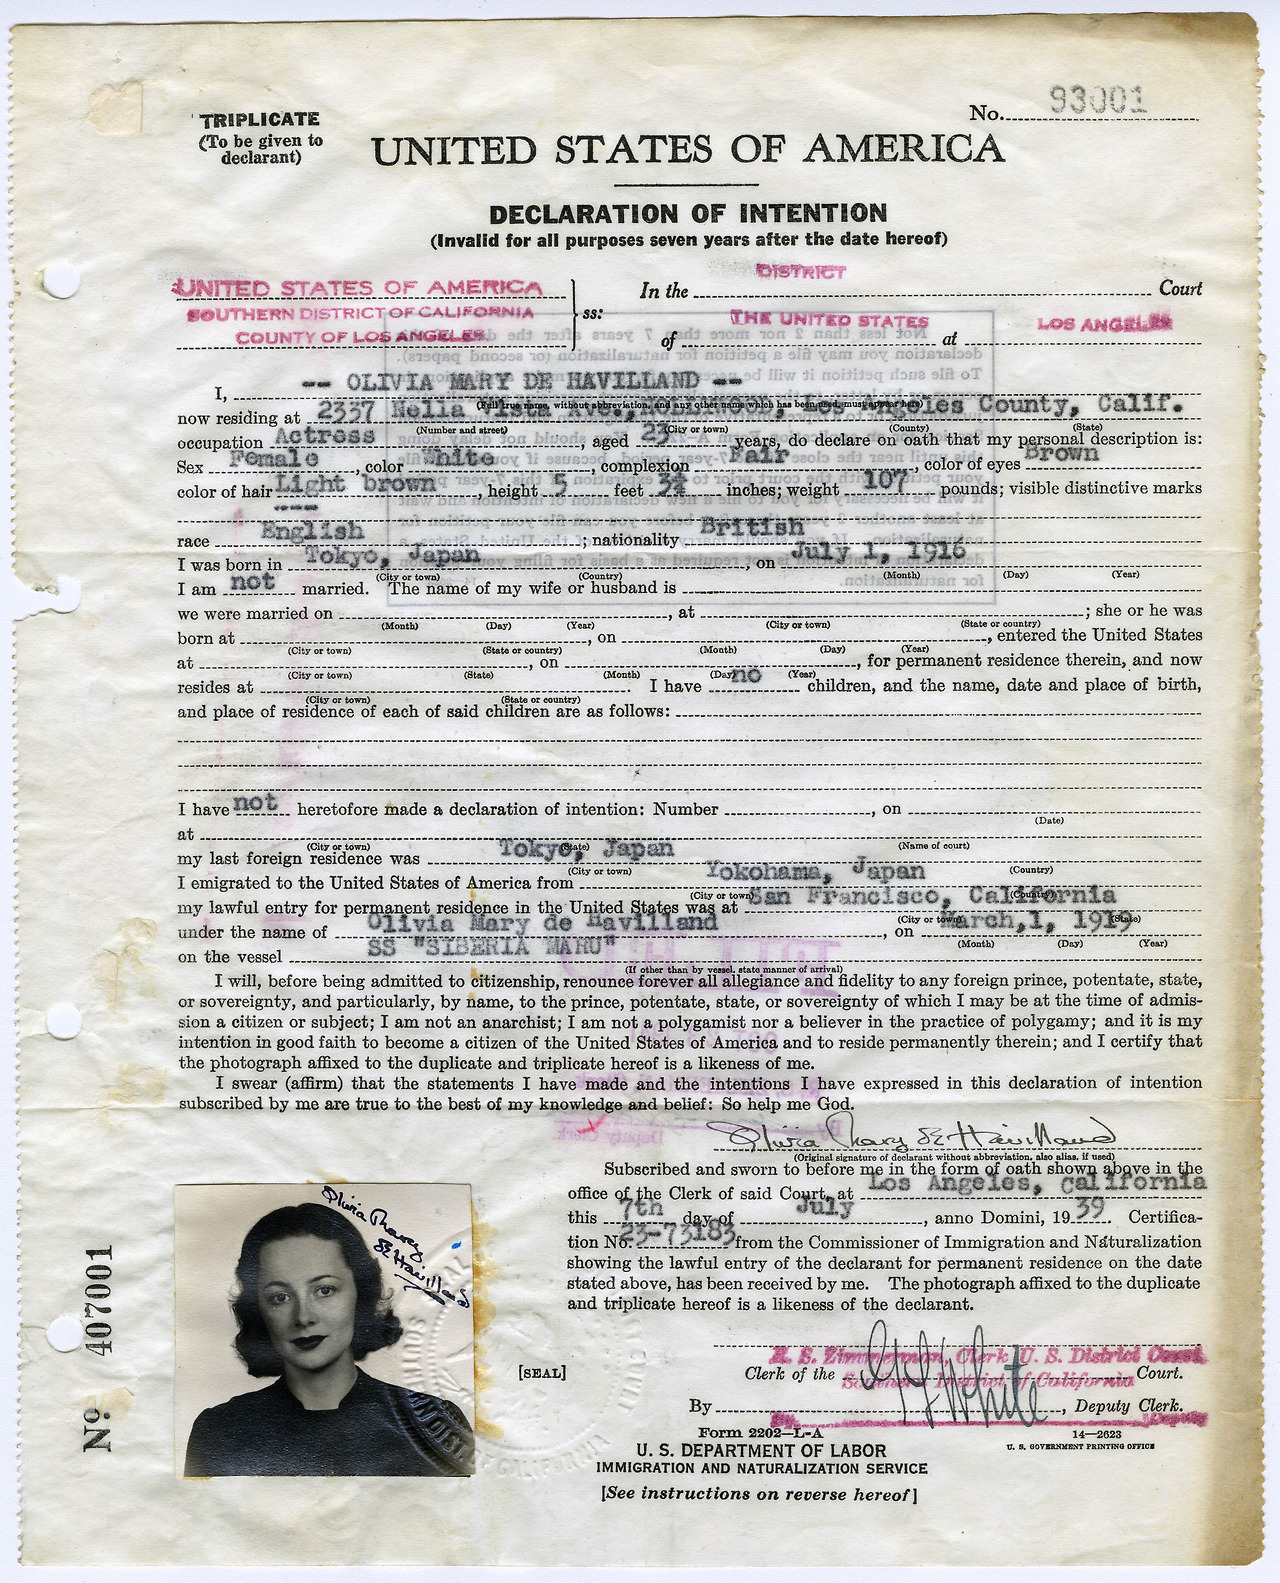 TRIPLICATE
(To be given to
declarant)
No. 93001
UNITED STATES OF AMERICA
DECLARATION OF INTENTION
(Invalid for all purposes seven years after the date hereof)
UNITED STATES OF AMERICA
SOUTHERN DISTRICT OF CALIFORNIA
COUNTY OF LOS ANGELES
ss:
In the DISTRICT Court
of THE UNITED STATES at LOS ANGELES
I, -- OLIVIA MARY DE HAVILLAND --
(Full true name, without abbreviation, and any other name which has been used, must appear here)
now residing at 2337 Nella Vista Los Angeles County, Calif.
(Number and street) (City or town) (County) (State)
occupation Actress, aged 23 years, do declare on oath that my personal description is:
Sex Female, color White, complexion Fair, color of eyes Brown
color of hair Light brown, height 5 feet inches; weight 107 pounds; visible distinctive marks
----
race English; nationality British
I was born in Tokyo, Japan, on July 1, 1916
(City or town) (Country) (Month) (Day) (Year)
I am not married. The name of my wife or husband is
we were married on, at; she or he was
(Month) (Day) (Year) (City or town) (State or country)
born at, on, entered the United States
(City or town) (State or country) (Month) (Day) (Year)
at, on, for permanent residence therein, and now
(City or town) (State) (Month) (Day) (Year)
resides at. I have no children, and the name, date and place of birth,
(City or town) (State or country)
and place of residence of each of said children are as follows:
I have not heretofore made a declaration of intention: Number, on
(Date)
at
(City or town) (State) (Name of court)
my last foreign residence was Tokyo, Japan
(City or town) (Country)
I emigrated to the United States of America from Yokohama, Japan
(City or town) (Country)
my lawful entry for permanent residence in the United States was at San Francisco, California
(City or town) (State)
under the name of Olivia Mary de Havilland, on March,1, 1919
(Month) (Day) (Year)
on the vessel SS "SIBERIA MARU"
(If other than by vessel, state manner of arrival)
I will, before being admitted to citizenship, renounce forever all allegiance and fidelity to any foreign prince, potentate, state,
or sovereignty, and particularly, by name, to the prince, potentate, state, or sovereignty of which I may be at the time of admis-
sion a citizen or subject; I am not an anarchist; I am not a polygamist nor a believer in the practice of polygamy; and it is my
intention in good faith to become a citizen of the United States of America and to reside permanently therein; and I certify that
the photograph affixed to the duplicate and triplicate hereof is a likeness of me.
I swear (affirm) that the statements I have made and the intentions I have expressed in this declaration of intention
subscribed by me are true to the best of my knowledge and belief: So help me God.
Olivia Mary de Havilland
(Original signature of declarant without abbreviation, also alias, if used)
Subscribed and sworn to before me in the form of oath shown above in the
office of the Clerk of said Court, at Los Angeles, California
this 7th day of July, anno Domini, 1939. Certifica-
tion No. 23-73183 from the Commissioner of Immigration and Naturalization
showing the lawful entry of the declarant for permanent residence on the date
stated above, has been received by me. The photograph affixed to the duplicate
and triplicate hereof is a likeness of the declarant.
Olivia Mary
de Havilland
No 407001
[SEAL]
R. S. Zimmerman, Clerk U. S. District Court
Southern District of California
Clerk of the Court.
By White, Deputy Clerk.
Deputy
Form 2202—L-A
14—2623
U. S. DEPARTMENT OF LABOR
U. S. GOVERNMENT PRINTING OFFICE
IMMIGRATION AND NATURALIZATION SERVICE
[See instructions on reverse hereof]